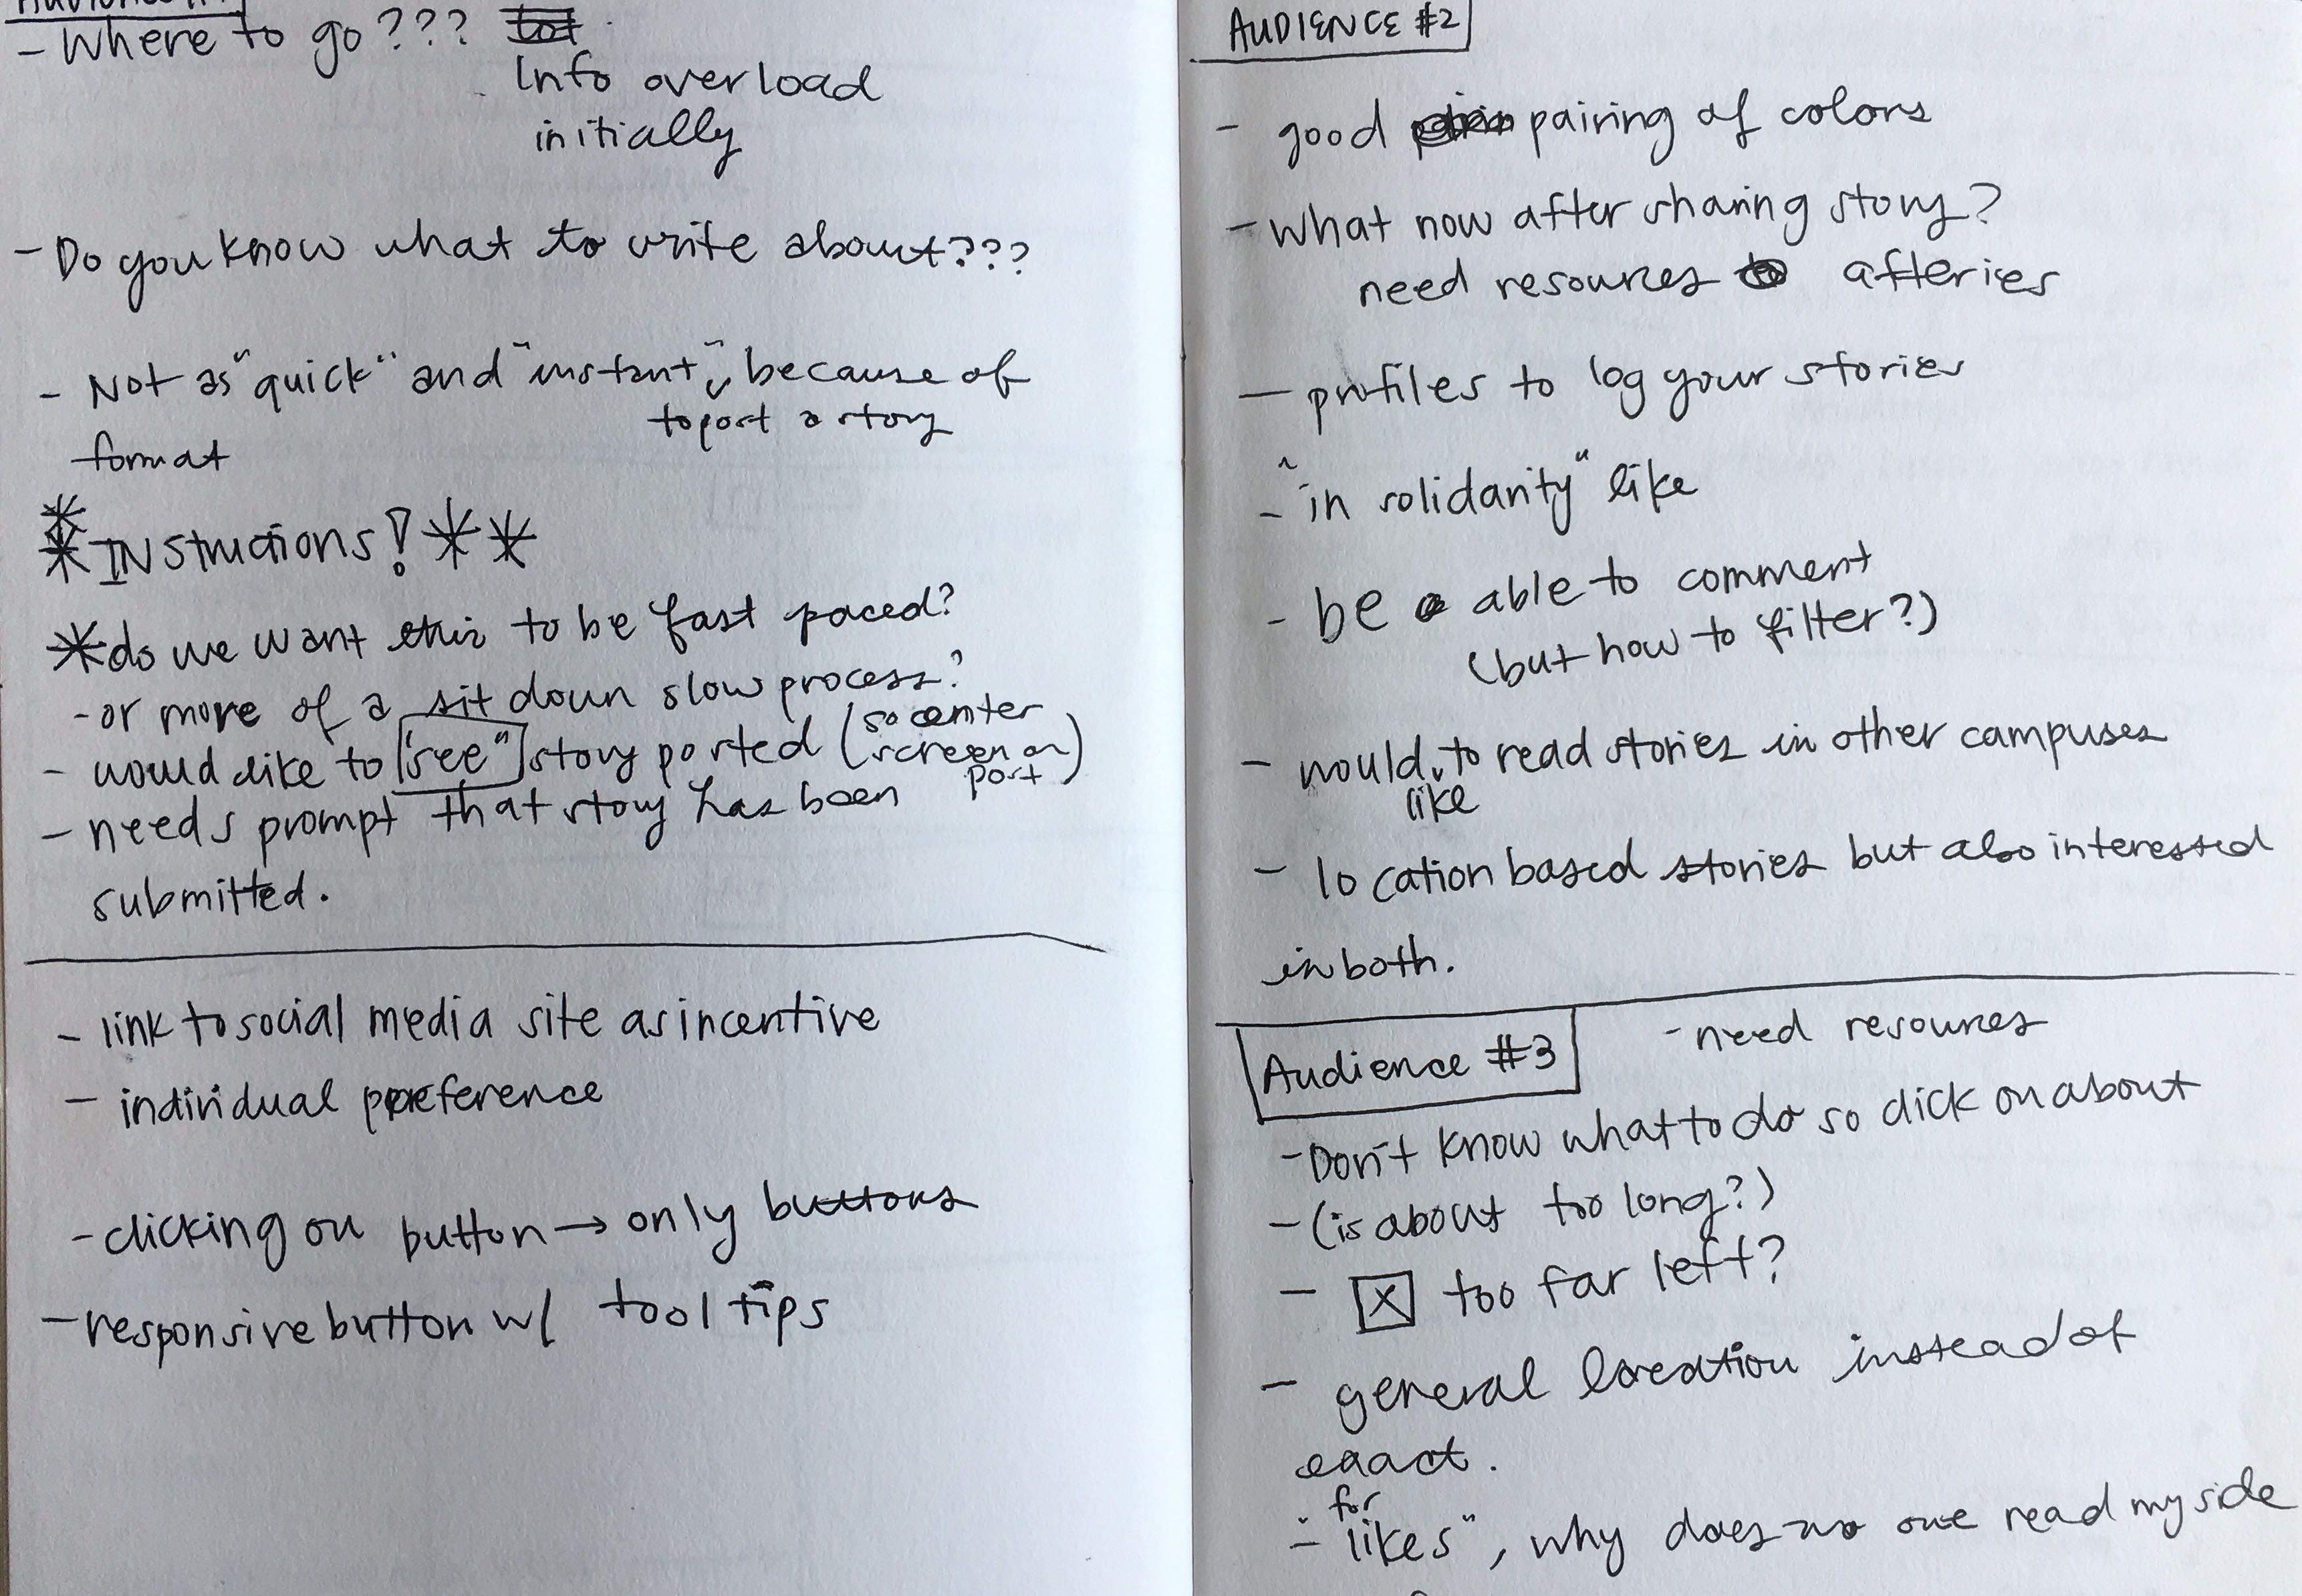 - Where to go???
Info overload
initially
- Do you know what to write about???
- Not as "quick" and "instant", because of
to post a story
format
** INStructions! **
* do we want this to be fast paced?
- or more of a sit down slow process?
- would like to "see" story posted (so center
screen on
post)
- needs prompt that story has been
submitted.
- link to social media site as incentive
- individual preference
- clicking on button → only buttons
- responsive button w/ tool tips
AUDIENCE #2
- good pairing of colors
- What now after sharing story?
need resources
- profiles to log your stories
- "in solidarity" like
- be able to comment
(but how to filter?)
- would to read stories in other campuses
like
- location based stories but also interested
in both.
Audience #3
- need resources
- Don't know what to do so click on about
- (is about too long?)
- X too far left?
- general location instead of
exact.
for
- "likes", why does no one read my side